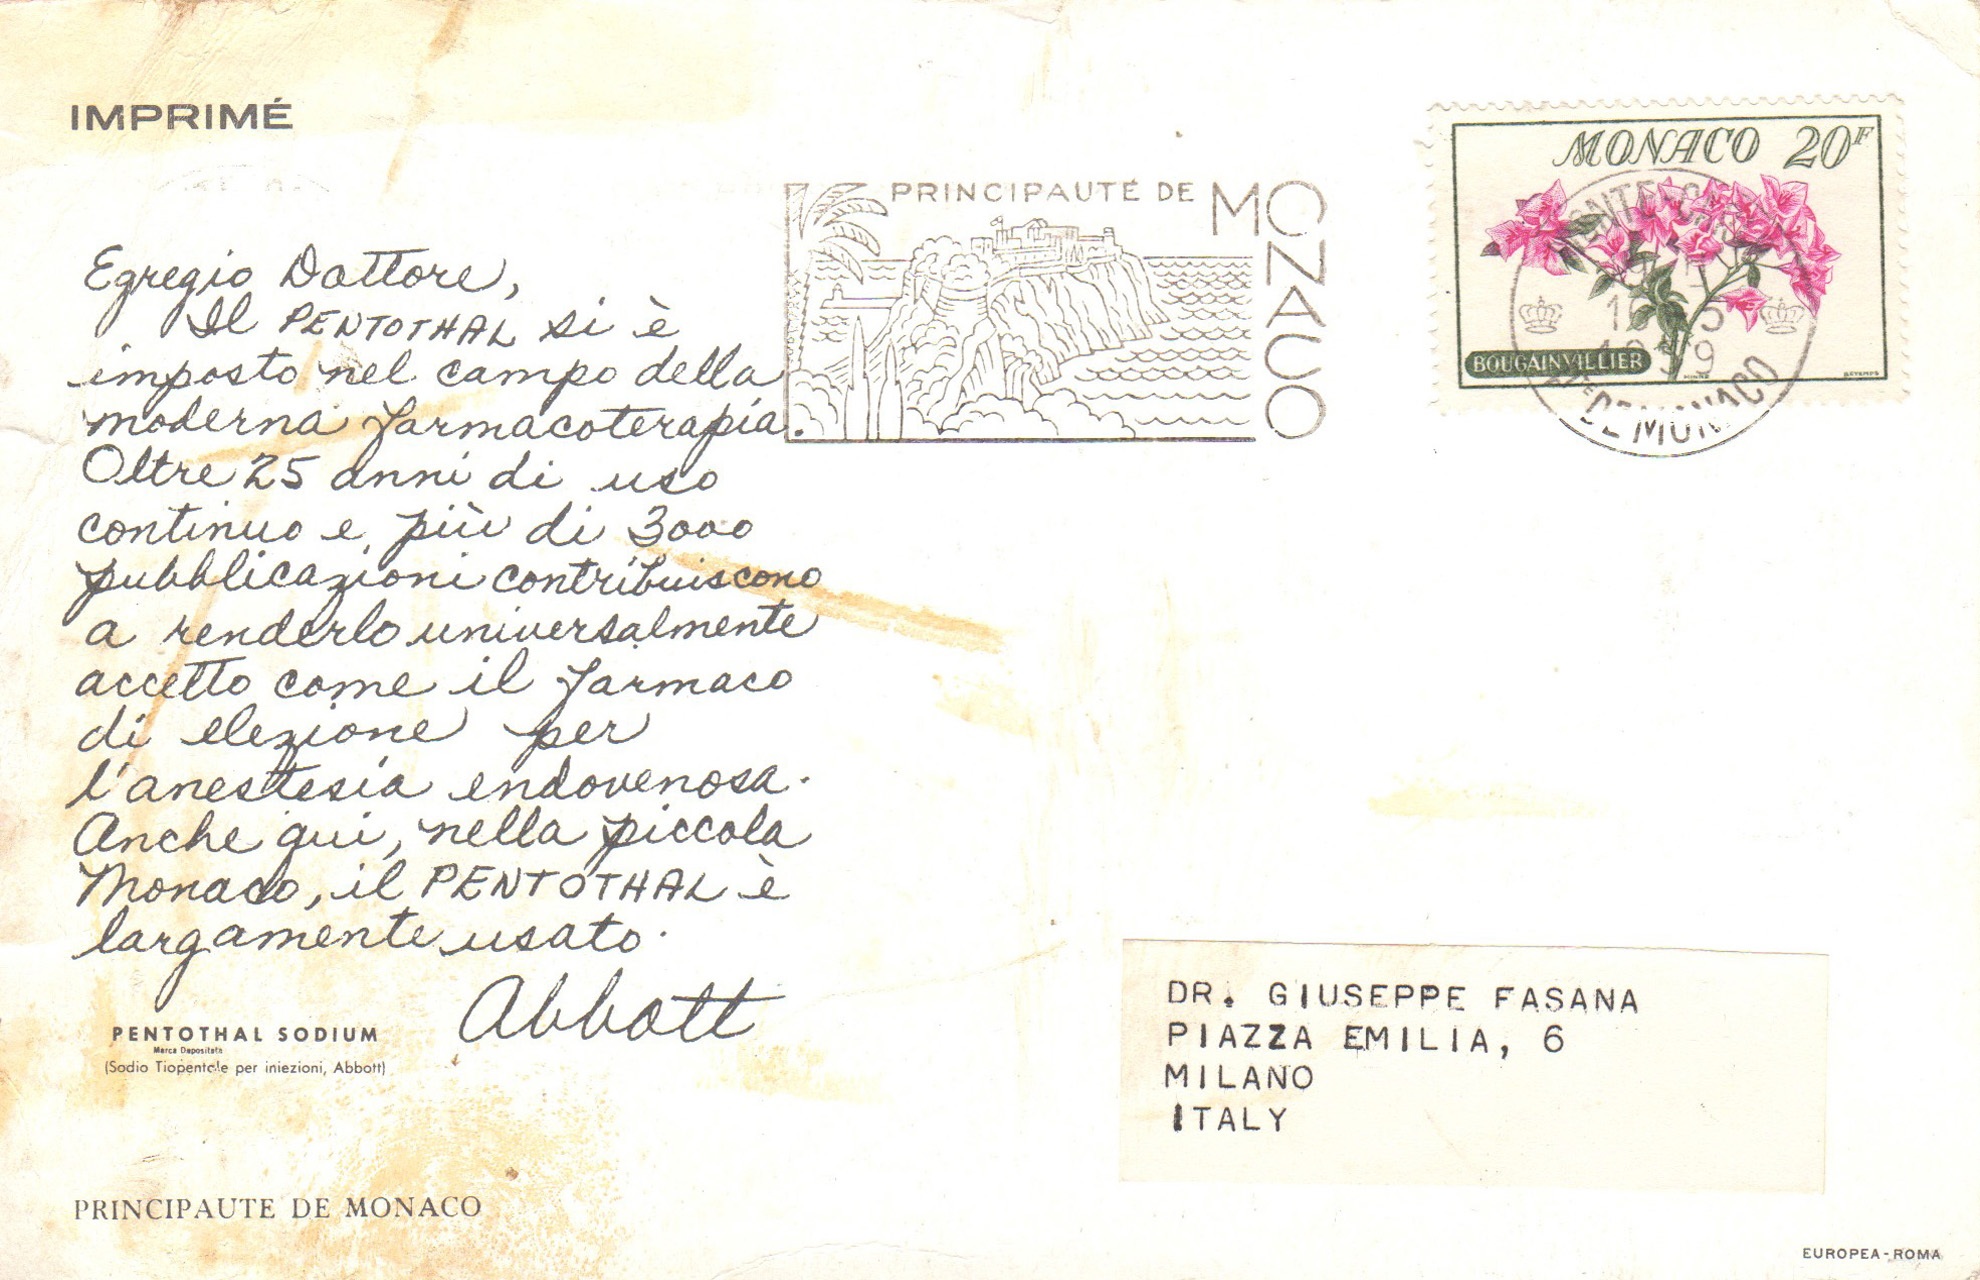 IMPRIMÉ
PRINCIPAUTÉ DE MONACO
MONACO 20F
BOUGAINVILLIER
MONTE-CARLO
1959
PTE DE MONACO
Egregio Dottore,
Il PENTOTHAL si è
imposto nel campo della
moderna farmacoterapia.
Oltre 25 anni di uso
continuo e più di 3000
pubblicazioni contribuiscono
a renderlo universalmente
accetto come il farmaco
di elezione per
l'anestesia endovenosa.
Anche qui, nella piccola
Monaco, il PENTOTHAL è
largamente usato.
Abbott
PENTOTHAL SODIUM
Marca Depositata
(Sodio Tiopentale per iniezioni, Abbott)
DR. GIUSEPPE FASANA
PIAZZA EMILIA, 6
MILANO
ITALY
PRINCIPAUTE DE MONACO
EUROPEA-ROMA